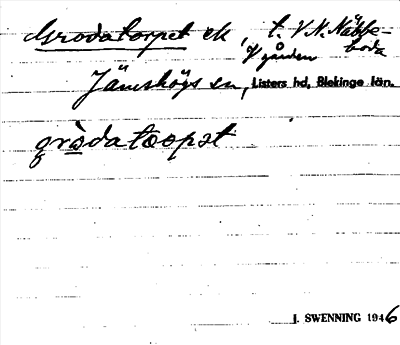 Grodatorpet ek, t. V. N. Näbbe-
boda
gården
Jämshögs sn, Listers hd, Blekinge län.
gròdatoopət
J. SWENNING 1946